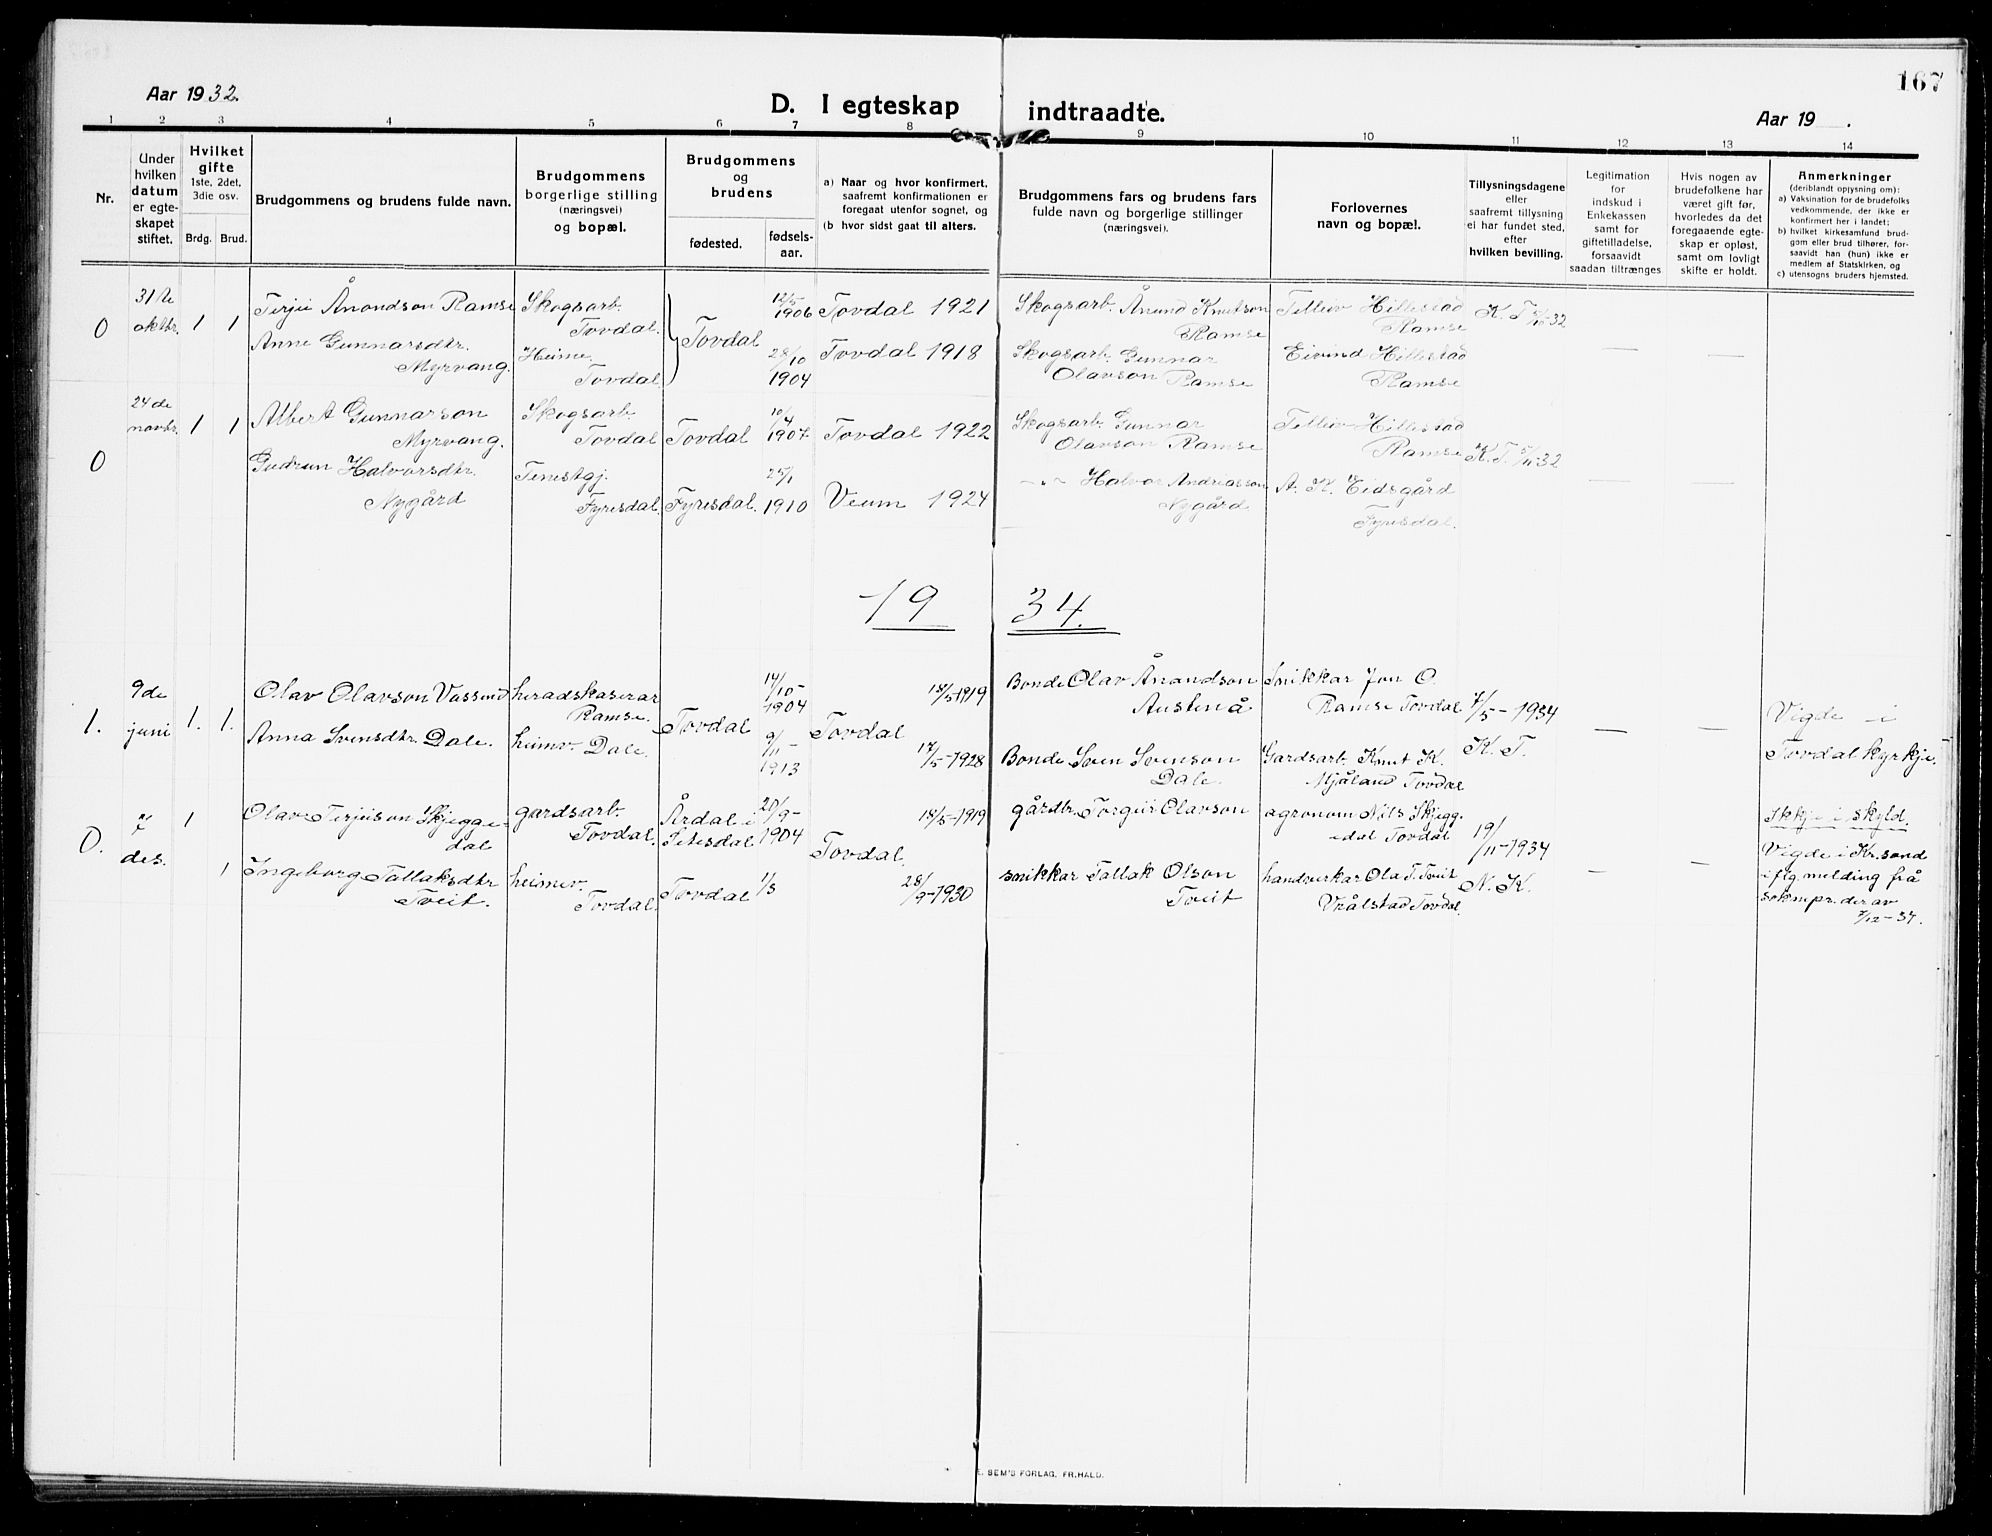 167
Aar 1932.
D. I egteskap indtraadte.
Aar 19 .
1 2 3 4 5 6 7 8 9 10 11 12 13 14
Nr.
Under
hvilken
datum
er egte-
skapet
stiftet.
Hvilket
gifte
1ste, 2det,
3die osv.
Brdg. Brud.
Brudgommens og brudens fulde navn.
Brudgommens
borgerlige stilling
(næringsvei)
og bopæl.
Brudgommens
og
brudens
fødested.
fødsels-
aar.
a) Naar og hvor konfirmert,
saafremt konfirmationen er
foregaat utenfor sognet, og
(b hvor sidst gaat til alters.
Brudgommens fars og brudens fars
fulde navn og borgerlige stillinger
(næringsvei).
Forlovernes
navn og bopæl.
Tillysningsdagene
eller
saafremt tillysning
ei har fundet sted,
efter
hvilken bevilling.
Legitimation
for
indskud i
Enkekassen
samt for
giftetilladelse,
forsaavidt
saadan tiltrænges
Hvis nogen av
brudefolkene har
været gift før,
hvorledes da det
foregaaende egte-
skap er opløst,
samt om lovligt
skifte er holdt.
Anmerkninger
(deriblandt opysning om):
a) Vaksination for de brudefolks
vedkommende, der ikke er
konfirmert her i landet;
b) hvilket kirkesamfund brud-
gom eller brud tilhører, for-
saavidt han (hun) ikke er
medlem af Statskirken, og
c) utensogns bruders hjemsted.
0
31te
oktbr.
1 1
Terjei Ånondson Ramse
Anne Gunnarsdtr.
Myrvang.
Skogsarb.
Tovdal.
Heime.
Tovdal.
Tovdal
12/5
1906
28/10
1904
Tovdal 1921
Tovdal 1918
Skogsarb. Ånund Knutson
Ramse
Skogsarb. Gunnar
Olavson Ramse
Telleiv Hillestad
Ramse
Eivind Hillestad
Ramse
K. T. 5/10-32
— —
0
24de
novbr.
1 1
Albert Gunnarson
Myrvang.
Gudrun Halvorsdtr.
Nygård
Skogsarb.
Tovdal
Tenestgj.
Fyresdal.
Tovdal
Fyresdal.
10/4
1907
25/1
1910
Tovdal 1922
Veum 1924
Skogsarb. Gunnar
Olavson Ramse
-"- Halvor Andreasson
Nygård
Telleiv Hillestad
Ramse
A. K. Eidsgård
Fyresdal.
K. T. 5/11-32
— —
19 34.
1.
9de
juni
1. 1.
Olav Olavson Vassend
Anna Svensdtr. Dale.
heradskaserar
Ramse.
heimv. Dale.
Tovdal
14/10-
1904
9/11-
1913
Tovdal
18/5-1919
17/5-1928
Bonde Olav Ånandson
Austenå
Bonde Sven Svenson
Dale.
Snikkar Jon O.
Ramse Tovdal
Gardsarb. Knut K.
Mjåland Tovdal
7/5-1934
K. T.
— —
Vigde i
Tovdal kyrkje.
0.
7
des.
1
1
Olav Terjeison Skjegge-
dal
Ingeborg Tallaksdtr
Tveit.
gardsarb.
Tovdal.
heimev.
Tovdal.
Årdal i
Setesdal
Tovdal
20/9-
1904
1/3
Tovdal.
18/5-1919
28/9-1930
gårdbr. Torgeir Olavson
snikkar Tallak Olson
Tveit
agronom Nils Skjegg-
edal Tovdal
handverkar Ola T. Tveit
Vrålstad Tovdal.
19/11-1934
N. K.
— —
Ikkje i skyld.
Vigde i Kr.sand
iflg. melding frå
soknepr. der av
7/12-34.
E. SEM'S FORLAG, FR.HALD.